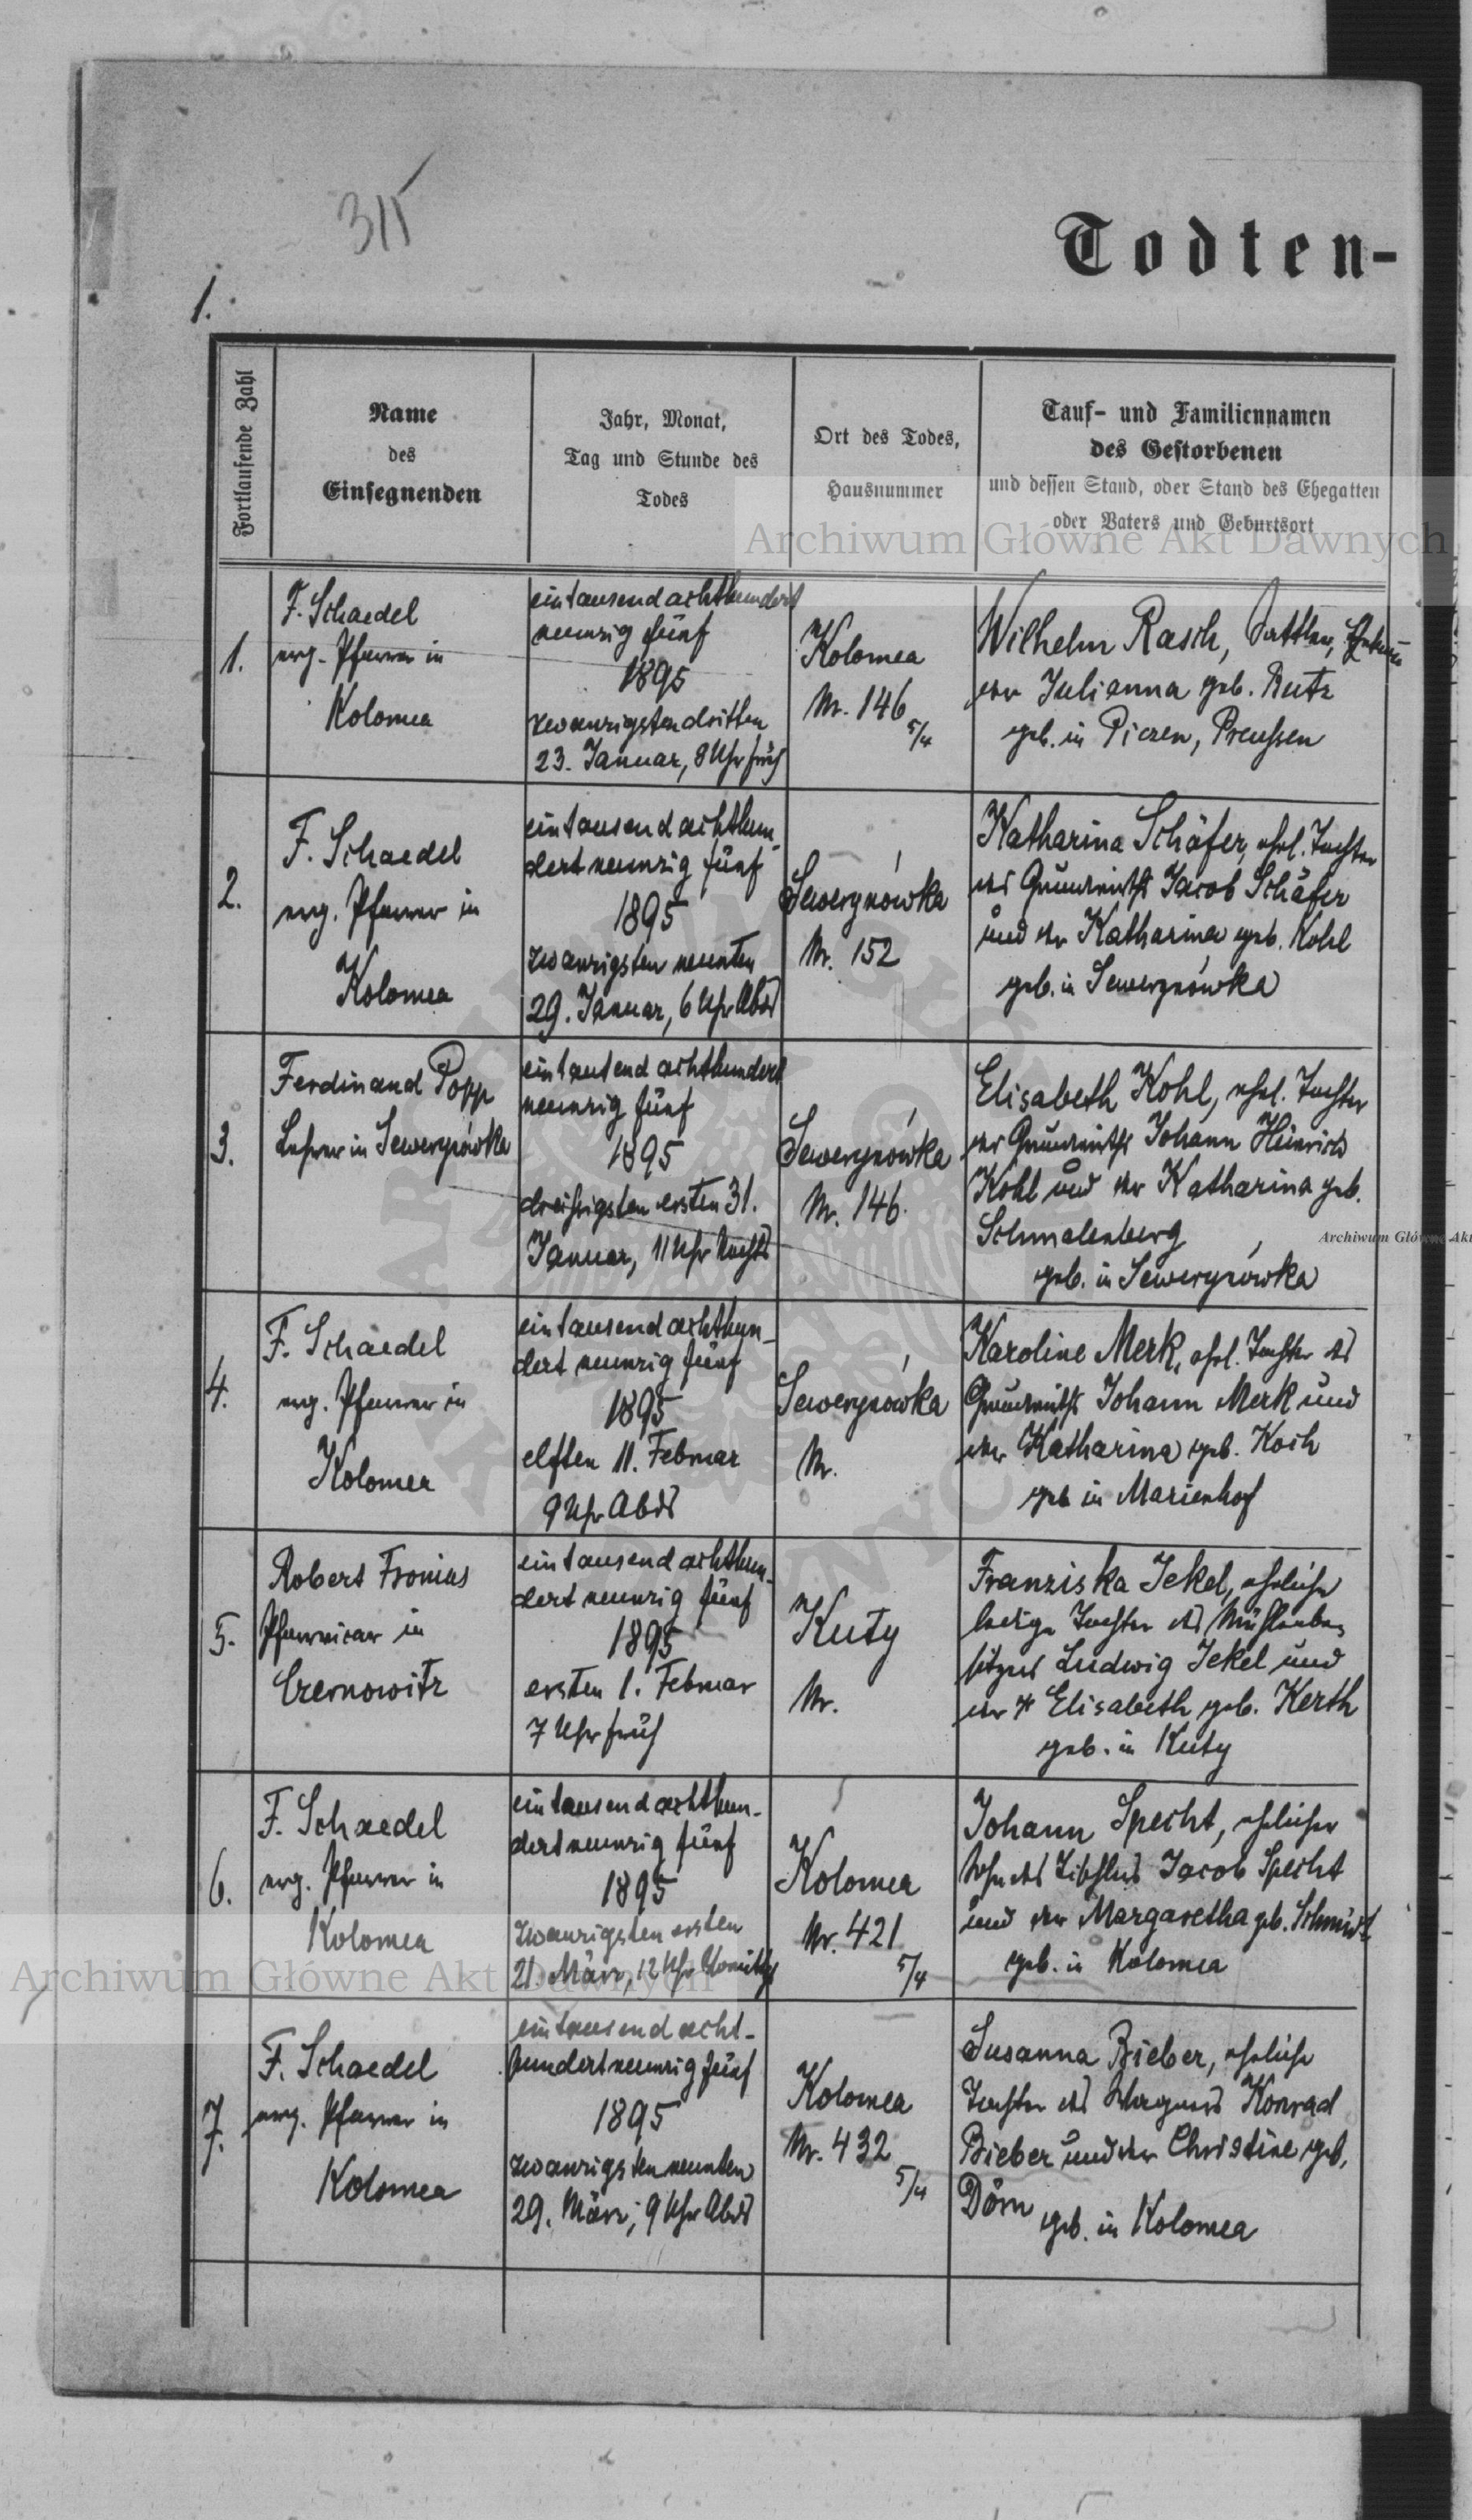 315
Todten-
1.
Fortlaufende Zahl
Name
des
Einsegnenden
Jahr, Monat,
Tag und Stunde des
Todes
Ort des Todes,
Hausnummer
Tauf- und Familiennamen
des Gestorbenen
und dessen Stand, oder Stand des Ehegatten
oder Vaters und Geburtsort
Archiwum Główne Akt Dawnych
1.
F. Schaedel
evg. Pfarrer in
Kolomea
eintausendachthundert
neunzig fünf
1895
zwanzigsten dritten
23. Januar, 8 Uhr früh
Kolomea
Nr. 146
5/4
Wilhelm Rasch, Sattler,
der Julianna geb. Rutz
geb. in Piczen, Preußen
2.
F. Schaedel
evg. Pfarrer in
Kolomea
eintausend achthun-
dert neunzig fünf
1895
zwanzigsten neunten
29. Januar, 6 Uhr Abds
Sewerynówka
Nr. 152
Katharina Schäfer, ehel. Tochter
des Grundwirths Jacob Schäfer
und der Katharina geb. Kohl
geb. in Sewerynówka
3.
Ferdinand Popp
Lehrer in Sewerynówka
eintausend achthundert
neunzig fünf
1895
dreißigsten ersten 31.
Januar, 11 Uhr Nachts
Sewerynówka
Nr. 146.
Elisabeth Kohl, ehel. Tochter
des Grundwirths Johann Heinrich
Kohl und der Katharina geb.
Schmalenberg
geb. in Sewerynówka
Archiwum Główne Akt
4.
F. Schaedel
evg. Pfarrer in
Kolomea
eintausend achthun-
dert neunzig fünf
1895
elften 11. Februar
9 Uhr Abds
Sewerynówka
Nr.
Karoline Merk, ehel. Tochter des
Grundwirths Johann Merk und
der Katharina geb. Koch
geb in Marienhof
5.
Robert Fronius
Pfarrvicar in
Czernowitz
eintausend achthun-
dert neunzig fünf
1895
ersten 1. Februar
7 Uhr früh
Kuty
Nr.
Franziska Jekel, eheliche
ledige Tochter des Mühlenbe-
sitzers Ludwig Jekel und
der Elisabeth geb. Kerth
geb. in Kuty
6.
F. Schaedel
evg. Pfarrer in
Kolomea
eintausend achthun-
dert neunzig fünf
1895
zwanzigsten ersten
21. März, 12 Uhr Vormittg
Kolomea
Nr. 421
5/4
Johann Specht, ehelicher
Sohn des Tischlers Jacob Specht
und der Margaretha geb. Schmidt
geb. in Kolomea
Archiwum Główne Akt Dawnych
7.
F. Schaedel
evg. Pfarrer in
Kolomea
eintausend acht-
hundert neunzig fünf
1895
zwanzigsten neunten
29. März, 9 Uhr Abds
Kolomea
Nr. 432
5/4
Susanna Bieber, eheliche
Tochter des Wagners Konrad
Bieber und der Christine geb.
Dörn
geb. in Kolomea